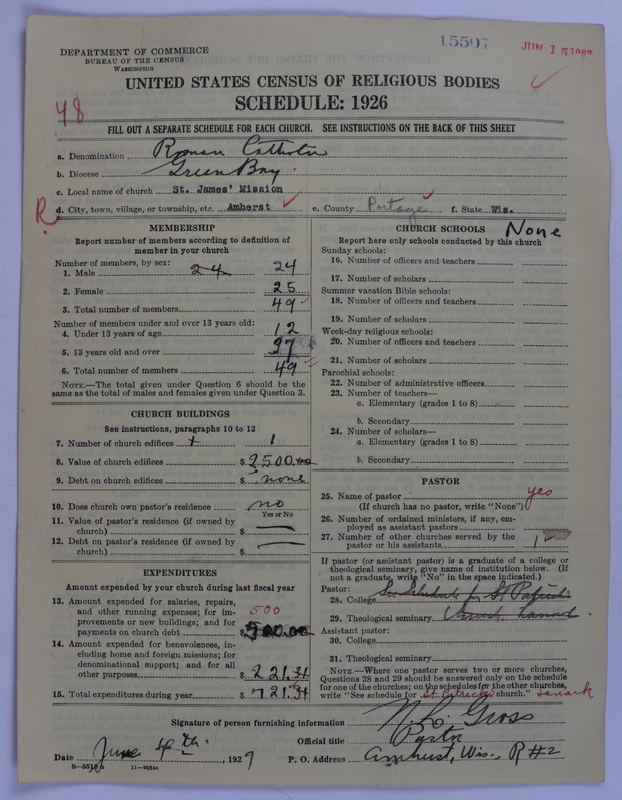 15507
JUN 15 1927
DEPARTMENT OF COMMERCE
BUREAU OF THE CENSUS
WASHINGTON
UNITED STATES CENSUS OF RELIGIOUS BODIES
SCHEDULE: 1926
48
FILL OUT A SEPARATE SCHEDULE FOR EACH CHURCH. SEE INSTRUCTIONS ON THE BACK OF THIS SHEET
a. Denomination Roman Catholic
b. Diocese Green Bay
c. Local name of church St. James' Mission
R
d. City, town, village, or township, etc. Amherst e. County Portage f. State Wis.
MEMBERSHIP
Report number of members according to definition of
member in your church
Number of members, by sex:
1. Male 24 24
2. Female 25
3. Total number of members 49
Number of members under and over 13 years old:
4. Under 13 years of age 12
5. 13 years old and over 37
6. Total number of members 49
NOTE.—The total given under Question 6 should be
same as the total of males and females given under Question 3.
CHURCH BUILDINGS
See instructions, paragraphs 10 to 12
7. Number of church edifices 1
8. Value of church edifices $2500.00
9. Debt on church edifices $ none
10. Does church own pastor's residence no
Yes or No
11. Value of pastor's residence (if owned by
church) $ —
12. Debt on pastor's residence (if owned by
church) $ —
EXPENDITURES
Amount expended by your church during last fiscal year
13. Amount expended for salaries, repairs,
and other running expenses; for im-
provements or new buildings; and for
payments on church debt 500 $500.00
14. Amount expended for benevolences, in-
cluding home and foreign missions; for
denominational support; and for all
other purposes $221.34
15. Total expenditures during year $721.34
CHURCH SCHOOLS None
Report here only schools conducted by this church
Sunday schools:
16. Number of officers and teachers
17. Number of scholars
Summer vacation Bible schools:
18. Number of officers and teachers
19. Number of scholars
Week-day religious schools:
20. Number of officers and teachers
21. Number of scholars
Parochial schools:
22. Number of administrative officers
23. Number of teachers—
a. Elementary (grades 1 to 8)
b. Secondary
24. Number of scholars—
a. Elementary (grades 1 to 8)
b. Secondary
PASTOR
25. Name of pastor yes
(If church has no pastor, write "None")
26. Number of ordained ministers, if any, em-
ployed as assistant pastors
27. Number of other churches served by the
pastor or his assistants 1
If pastor (or assistant pastor) is a graduate of a college or
theological seminary, give name of institution below. (If
not a graduate, write "No" in the space indicated.)
Pastor:
28. College See schedule for St Patrick's
29. Theological seminary Church Lanark
Assistant pastor:
30. College
31. Theological seminary
NOTE.—Where one pastor serves two or more churches,
Questions 28 and 29 should be answered only on the schedule
for one of the churches; on the schedules for the other churches,
write "See schedule for St Patricks church." Lanark
Signature of person furnishing information N. L. Gross
Official title Pastor
Date June 4th. 1927 P. O. Address Amherst, Wis., R #2
8—5515a 11—9204a